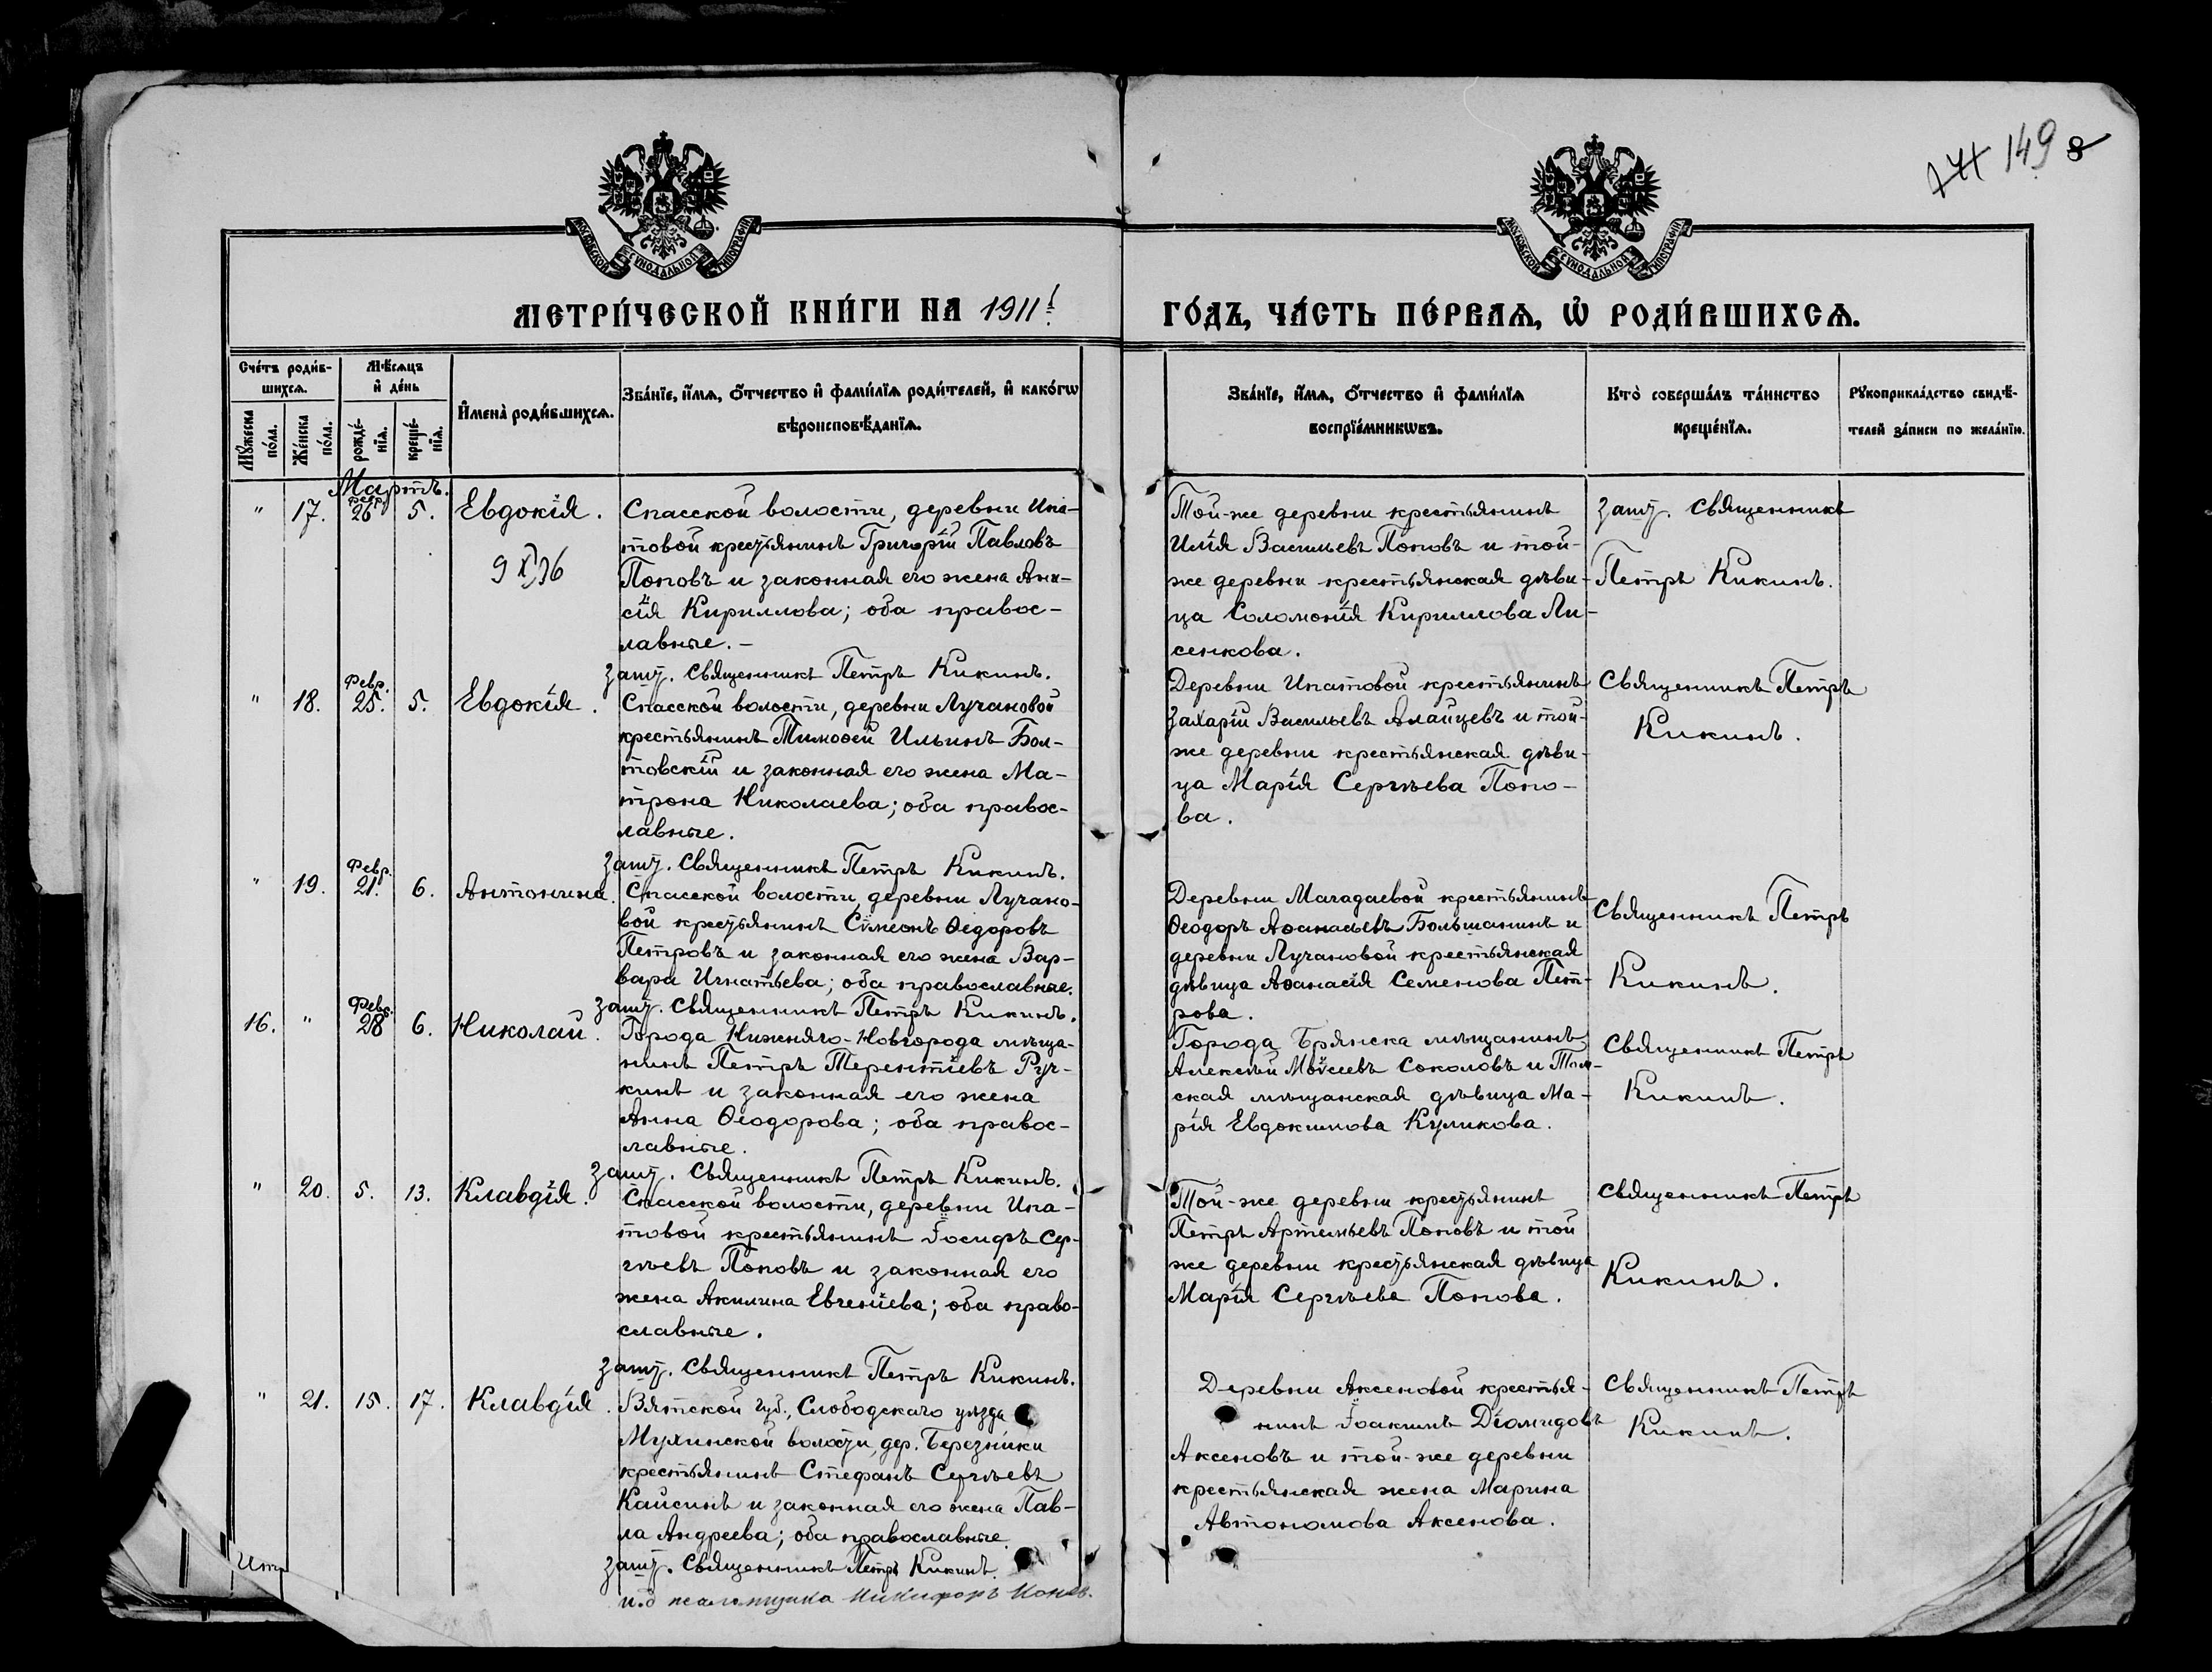 149 8
МОСКОВСКОЙ СѴНОДАЛЬНОЙ ТИПОГРАФІИ
МОСКОВСКОЙ СѴНОДАЛЬНОЙ ТИПОГРАФІИ
МЕТРИ́ЧЕСКОЙ КНИ́ГИ НА 1911 г.
ГО́ДЪ, ЧА́СТЬ ПЕ́РВАѦ, Ѡ РОДИ́ВШИХСѦ.
Сче́тъ роди́в-
шихсѧ.
Мꙋ́жеска
по́ла.
Же́нска
по́ла.
Мѣ́сѧцъ
и де́нь
рожде́-
нїѧ.
креще́-
нїѧ.
Имена̀ роди́вшихсѧ.
Зва́нїе, и́мѧ, о́тчество и фами́лїѧ роди́телей, и како́гѡ
вѣроисповѣ́данїѧ.
Зва́нїе, и́мѧ, о́тчество и фами́лїѧ
воспрїе́мникѡвъ.
Кто̀ соверша́лъ та́инство
креще́нїѧ.
Рꙋкоприкла́дство свидѣ́-
телей за́писи по жела́нїю.
Мартъ.
" 17. Февр. 26 5. Евдокія.
9 X 36
Спасской волости, деревни Ипа-
товой крестьянинъ Григорій Павловъ
Поповъ и законная его жена Ани-
сія Кириллова; оба правос-
лавные. -
Зашт. Священникъ Петръ Кикинъ.
Той-же деревни крестьянинъ
Илія Васильевъ Поповъ и той-
же деревни крестьянская дѣви-
ца Соломонія Кириллова Ли-
сенкова.
Зашт. Священникъ
Петръ Кикинъ.
" 18. Февр. 25. 5. Евдокія.
Спасской волости, деревни Лучановой
крестьянинъ Тимоѳей Ильинъ Бол-
товскій и законная его жена Ма-
трона Николаева; оба правос-
лавные.
Зашт. Священникъ Петръ Кикинъ.
Деревни Ипатовой крестьянинъ
Захарій Васильевъ Алайцевъ и той-
же деревни крестьянская дѣви-
ца Марія Сергѣева Попо-
ва.
Священникъ Петръ
Кикинъ.
" 19. Февр. 21. 6. Антонина.
Спасской волости, деревни Лучано-
вой крестьянинъ Сѵмеонъ Ѳедоровъ
Петровъ и законная его жена Вар-
вара Игнатьева; оба православные.
Зашт. Священникъ Петръ Кикинъ.
Деревни Магадаевой крестьянинъ
Ѳеодоръ Аѳанасьевъ Большанинъ и
деревни Лучановой крестьянская
дѣвица Аѳанасія Семенова Пет-
рова.
Священникъ Петръ
Кикинъ.
16. " Февр. 28 6. Николай.
Города Нижняго-Новгорода мѣща-
нинъ Петръ Терентіевъ Руч-
кинъ и законная его жена
Анна Ѳеодорова; оба правос-
лавные.
Зашт. Священникъ Петръ Кикинъ.
Города Брянска мѣщанинъ
Алексѣй Моѵсеевъ Соколовъ и Том-
ская мѣщанская дѣвица Ма-
рія Евдокимова Куликова.
Священникъ Петръ
Кикинъ.
" 20. 5. 13. Клавдія.
Спасской волости, деревни Ипа-
товой крестьянинъ Іосифъ Сер-
гѣевъ Поповъ и законная его
жена Акилина Евгеніева; оба право-
славные.
Зашт. Священникъ Петръ Кикинъ.
Той-же деревни крестьянинъ
Петръ Артемьевъ Поповъ и той
же деревни крестьянская дѣвица
Марія Сергѣева Попова.
Священникъ Петръ
Кикинъ.
" 21. 15. 17. Клавдія.
Вятской губ., Слободскаго уѣзда
Мухинской волости, дер. Березники
крестьянинъ Стефанъ Сергѣевъ
Кайсинъ и законная его жена Пав-
ла Андреева; оба православные.
Зашт. Священникъ Петръ Кикинъ.
и.д псаломщика Никифоръ
Деревни Аксеновой крестья-
нинъ Іоакимъ Діомидовъ
Аксеновъ и той-же деревни
крестьянская жена Марина
Автономова Аксенова.
Священникъ Петръ
Кикинъ.